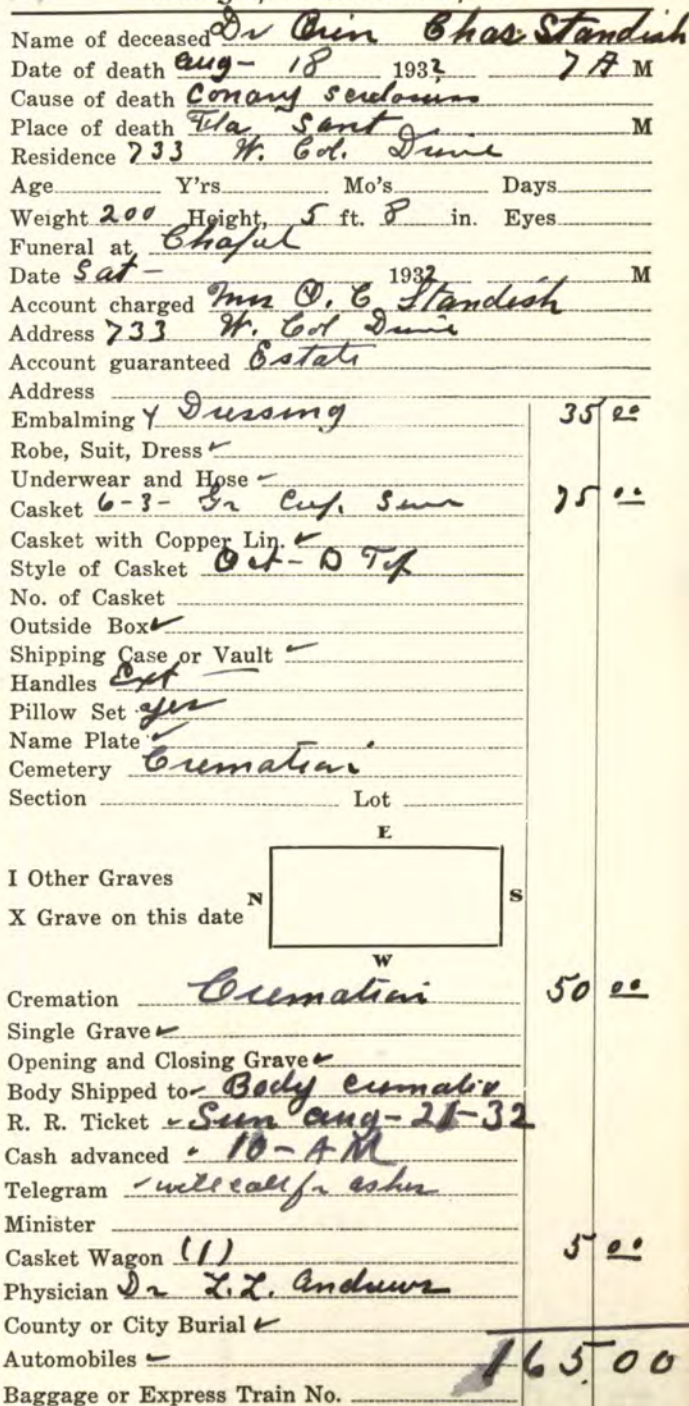 Name of deceased Dr Orin Chas Standish
Date of death Aug- 18 1932 7 A M
Cause of death Conary Sclerosus
Place of death Fla Sant M
Residence 733 W. Col. Drive
Age Y'rs Mo's Days
Weight 200 Height, 5 ft. 8 in. Eyes
Funeral at Chapel
Date Sat- 1932 M
Account charged Mrs O. C Standish
Address 733 W. Col Drive
Account guaranteed Estate
Address
Embalming & Dressing 35 00
Robe, Suit, Dress ✓
Underwear and Hose ✓
Casket 6-3- Gr 75 00
Casket with Copper Lin. ✓
Style of Casket Oct- D Top
No. of Casket
Outside Box ✓
Shipping Case or Vault ✓
Handles Ext
Pillow Set yes
Name Plate ✓
Cemetery Cremation
Section Lot
E
I Other Graves
N S
X Grave on this date
W
Cremation Cremation 50 00
Single Grave ✓
Opening and Closing Grave ✓
Body Shipped to Body cremated
R. R. Ticket Sun Aug- 21-32
Cash advanced 10- AM
Telegram will call for ashes
Minister
Casket Wagon (1) 5 00
Physician Dr L.L. Andrews
County or City Burial ✓
Automobiles 165.00
Baggage or Express Train No.